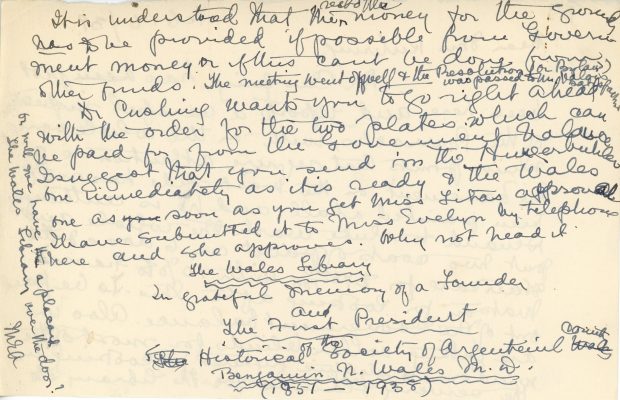 It is understood that the rest of the money for the grounds
has to be provided if possible from Govern
ment money or if this can't be done from
other funds. The meeting went off well & the Resolution for
was passed
Dr Cushing wants you to go right ahead
with the order for the two plates which can
be paid for from the Government balance
I suggest that you send in the
one immediately as it is ready & the Wales
one as soon as you get Miss Litas approval
I have submitted it to Miss Evelyn by telephone
here and she approves. Why not head it
The Wales Library
In grateful memory of a Founder
and
The First President
of the
Historical Society of Argenteuil County
Benjamin N. Wales M.D.
(1851 - 1938)
or will we have the a placard
The Wales Library over the door?